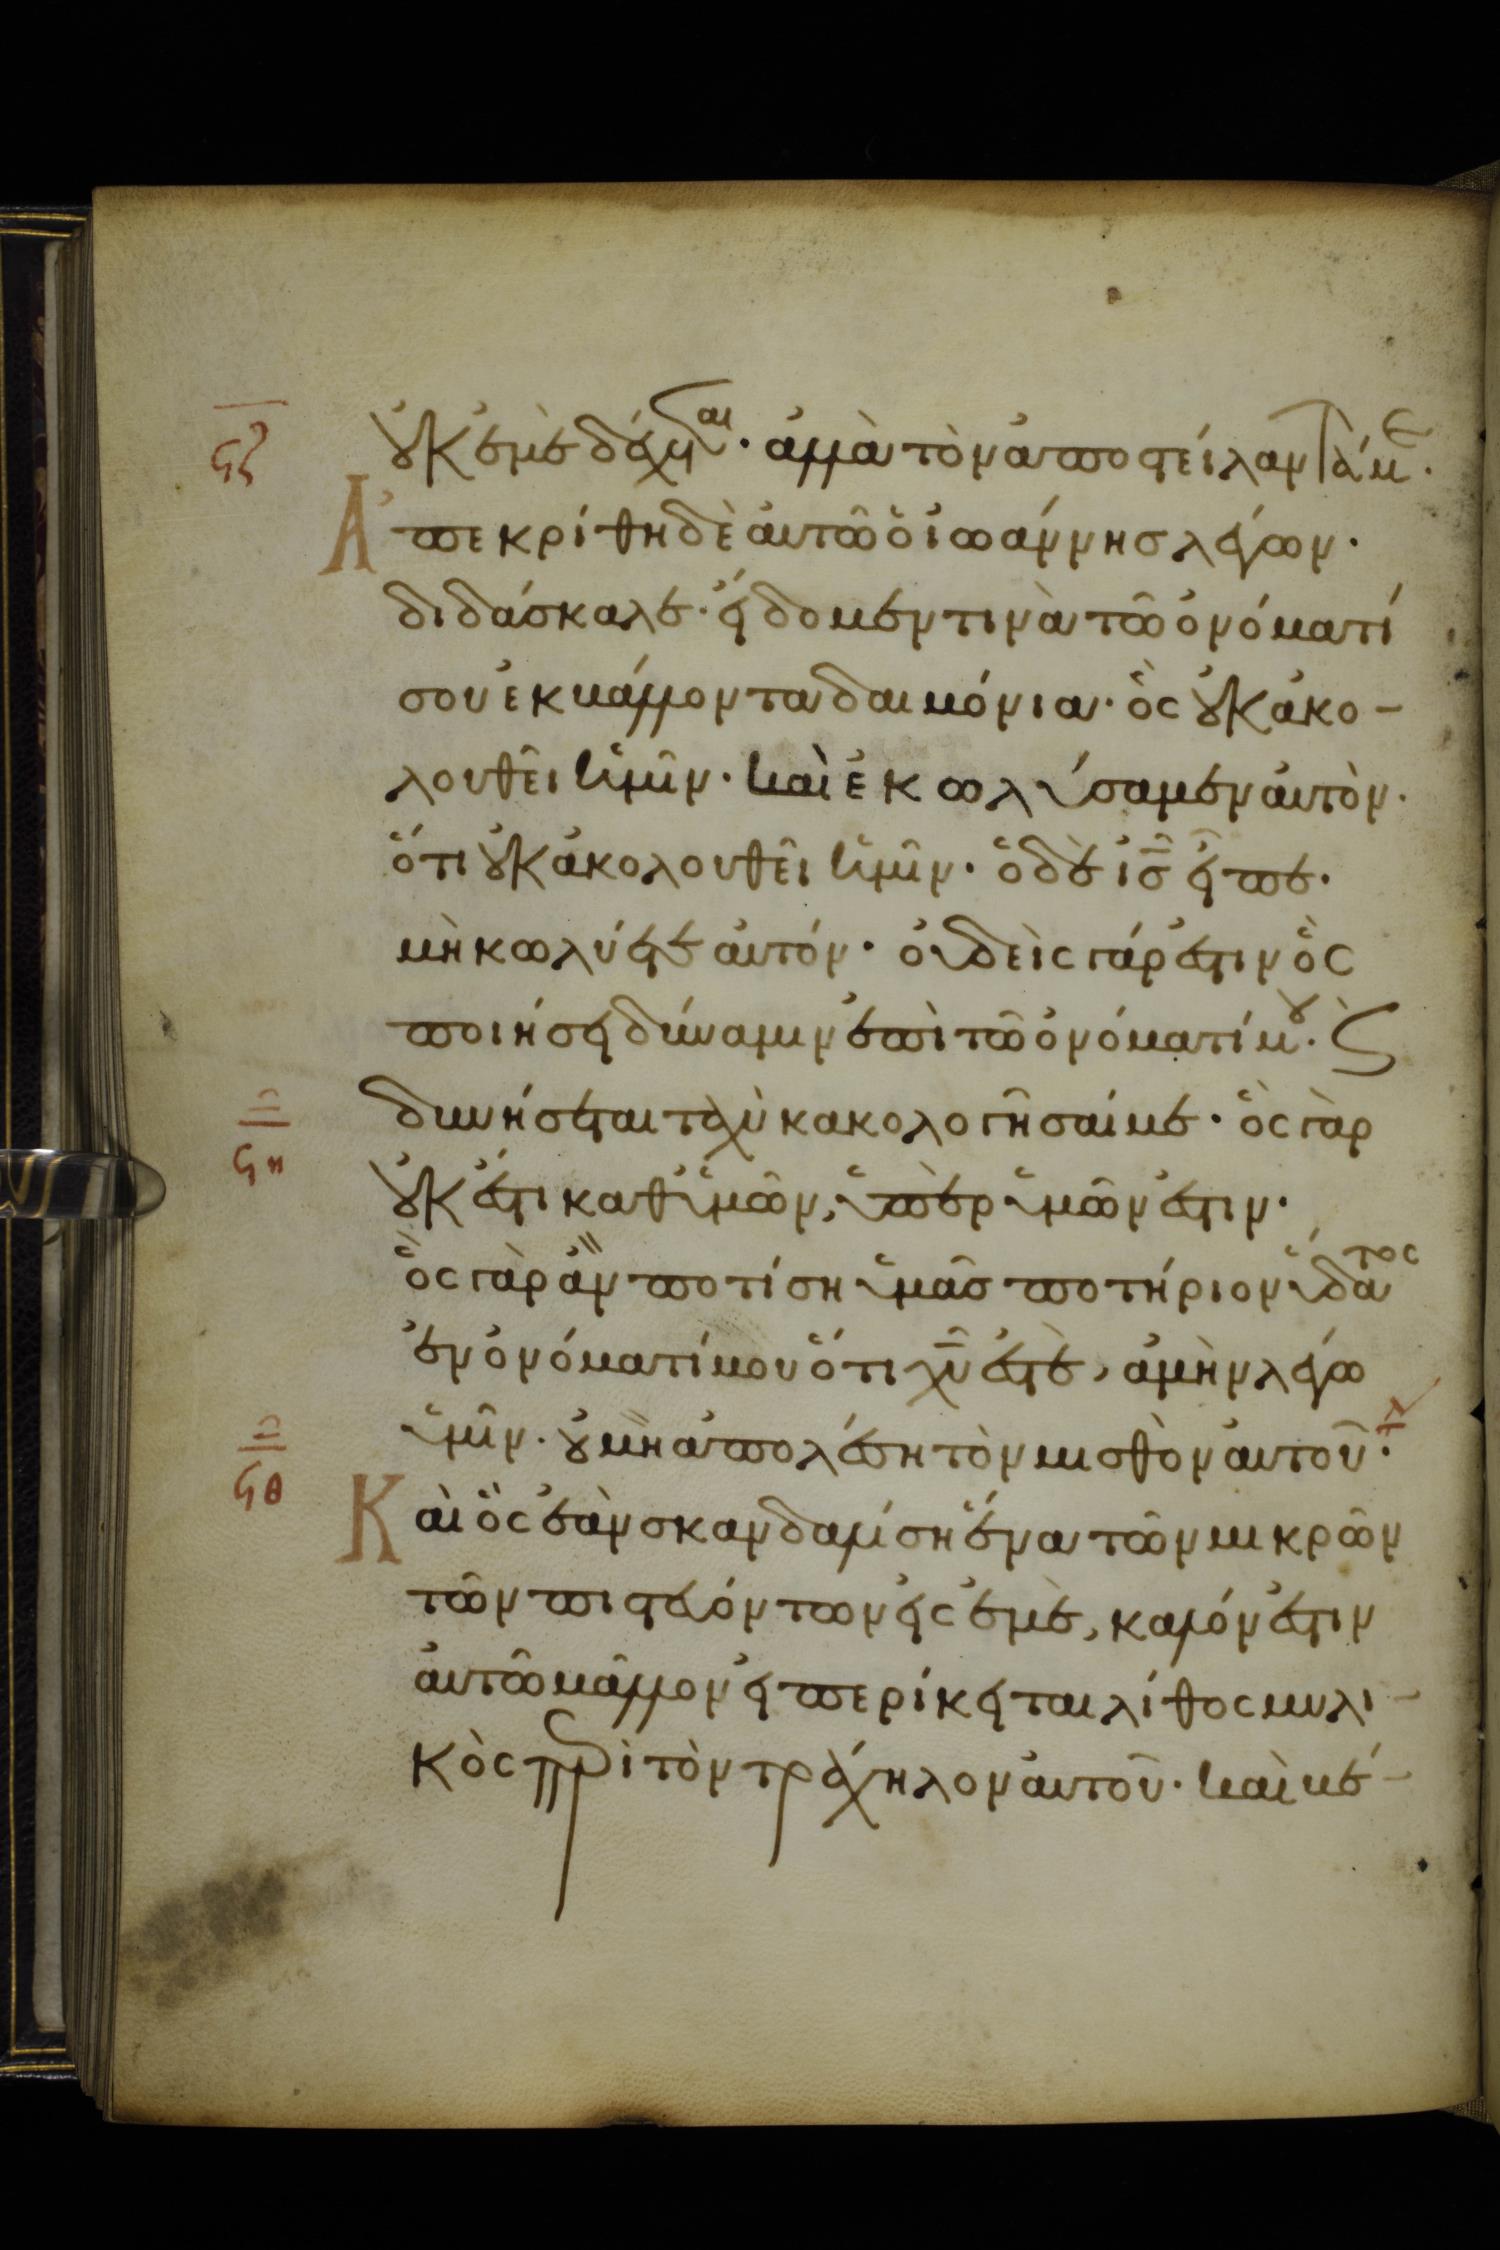 ϟζ
οὐκ ἐμὲ δέχεται· ἀλλὰ τὸν ἀποστείλαντά με·
Ἀπεκρίθη δὲ αὐτῶ ὁ ἰωάννησ λέγων·
διδάσκαλε· εἴδομέν τινα τῶ ὀνόματί
σου ἐκβάλλοντα δαιμόνια· ὃς οὐκ ἀκο-
λουθεῖ ἡμῖν· καὶ ἐκωλύσαμεν αὐτὸν·
ὅτι οὐκ ἀκολουθεῖ ἡμῖν· ὁ δὲ ισ εἶπε·
μὴ κωλύετε αὐτόν· οὐδεὶς γάρ ἐστιν ὃς
ποιήσει δύναμιν ἐπὶ τῶ ὀνόματί μου· Ϛ
ϟη
δυνήσεται ταχὺ κακολογῆσαί με· ὃς γὰρ
οὐκ ἔστι καθ' ὑμῶν, ὑπὲρ ὑμῶν ἐστιν·
ὃς γὰρ ἂν ποτίση ὑμᾶσ ποτήριον ὕδατος
ἐν ὀνόματί μου ὅτι χυ ἐστὲ, ἀμὴν λέγω
ὑμῖν· οὐ μὴ ἀπολέση τὸν μισθὸν αὐτοῦ·
ϟθ
Καὶ ὃς ἐὰν σκανδαλίση ἕνα τῶν μικρῶν
τῶν πιστευόντων εἰς ἐμὲ, καλόν ἐστιν
αὐτῶ μᾶλλον εἰ περίκειται λίθος μυλι-
κὸς περὶ τὸν τράχηλον αὐτοῦ· καὶ βέ-